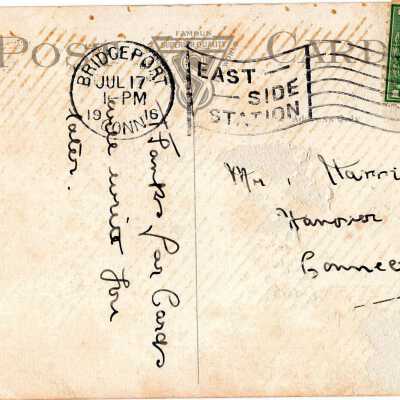 POST CARD
FAMOUS
SUPERIOR QUALITY
BRIDGEPORT
JUL 17
1-PM
1916
CONN.
EAST
SIDE
STATION
Thanks for Cards
will write you
later.
Mr. Harri
Hanover
Connec